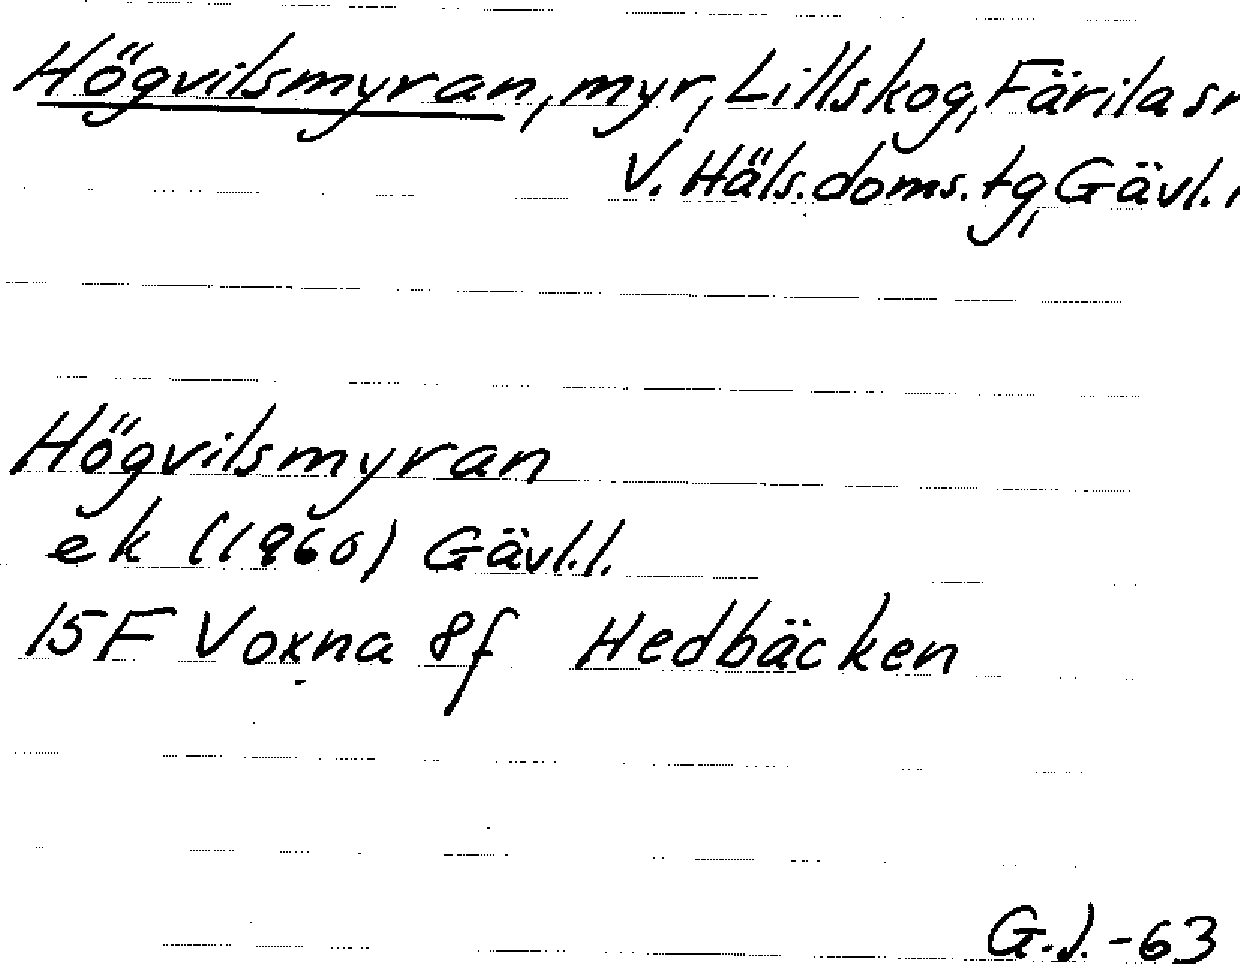 Högvilsmyran, myr, Lillskog, Färila sn
V. Häls. doms. tg, Gävl. l
Högvilsmyran
ek (1960) Gävl.l.
15F Voxna 8f Hedbäcken
G.J.-63